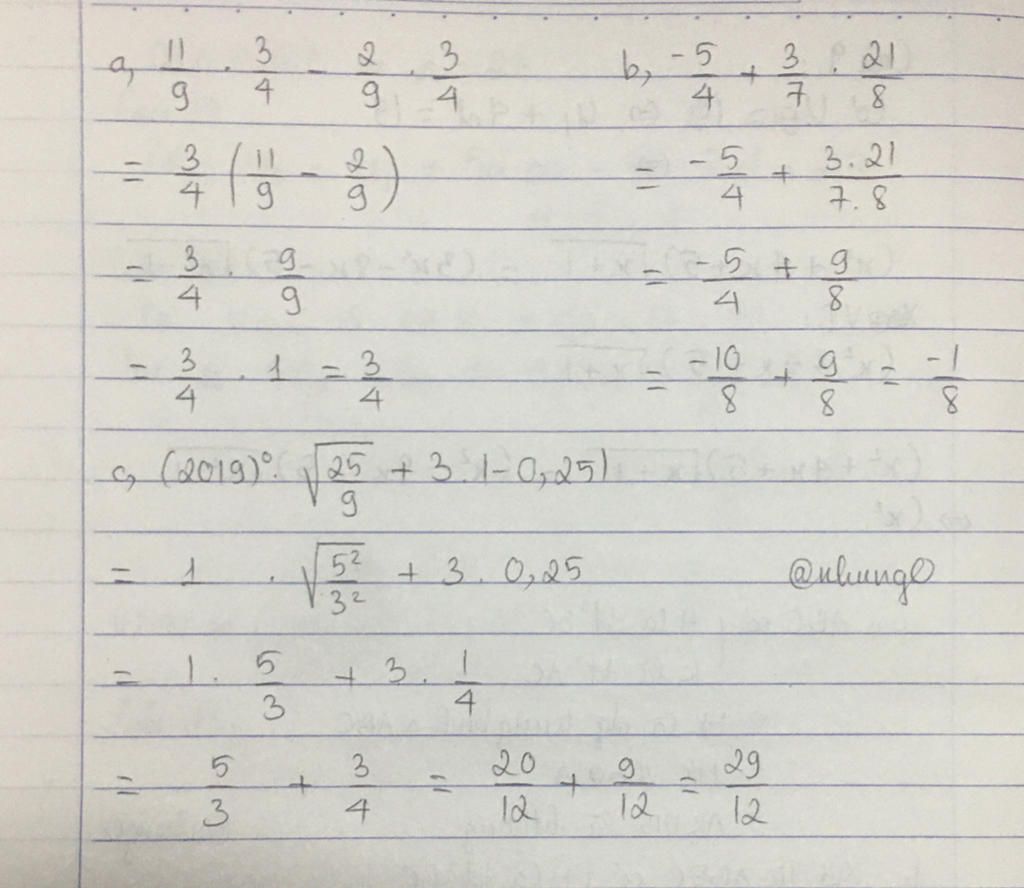 a, 11/9 . 3/4 - 2/9 . 3/4
= 3/4 (11/9 - 2/9)
= 3/4 . 9/9
= 3/4 . 1 = 3/4
b, -5/4 + 3/7 . 21/8
= -5/4 + 3.21/7.8
= -5/4 + 9/8
= -10/8 + 9/8 = -1/8
c, (2019)⁰ . √(25/9) + 3.|-0,25|
= 1 . √(5²/3²) + 3 . 0,25
@nhung
= 1 . 5/3 + 3 . 1/4
= 5/3 + 3/4 = 20/12 + 9/12 = 29/12